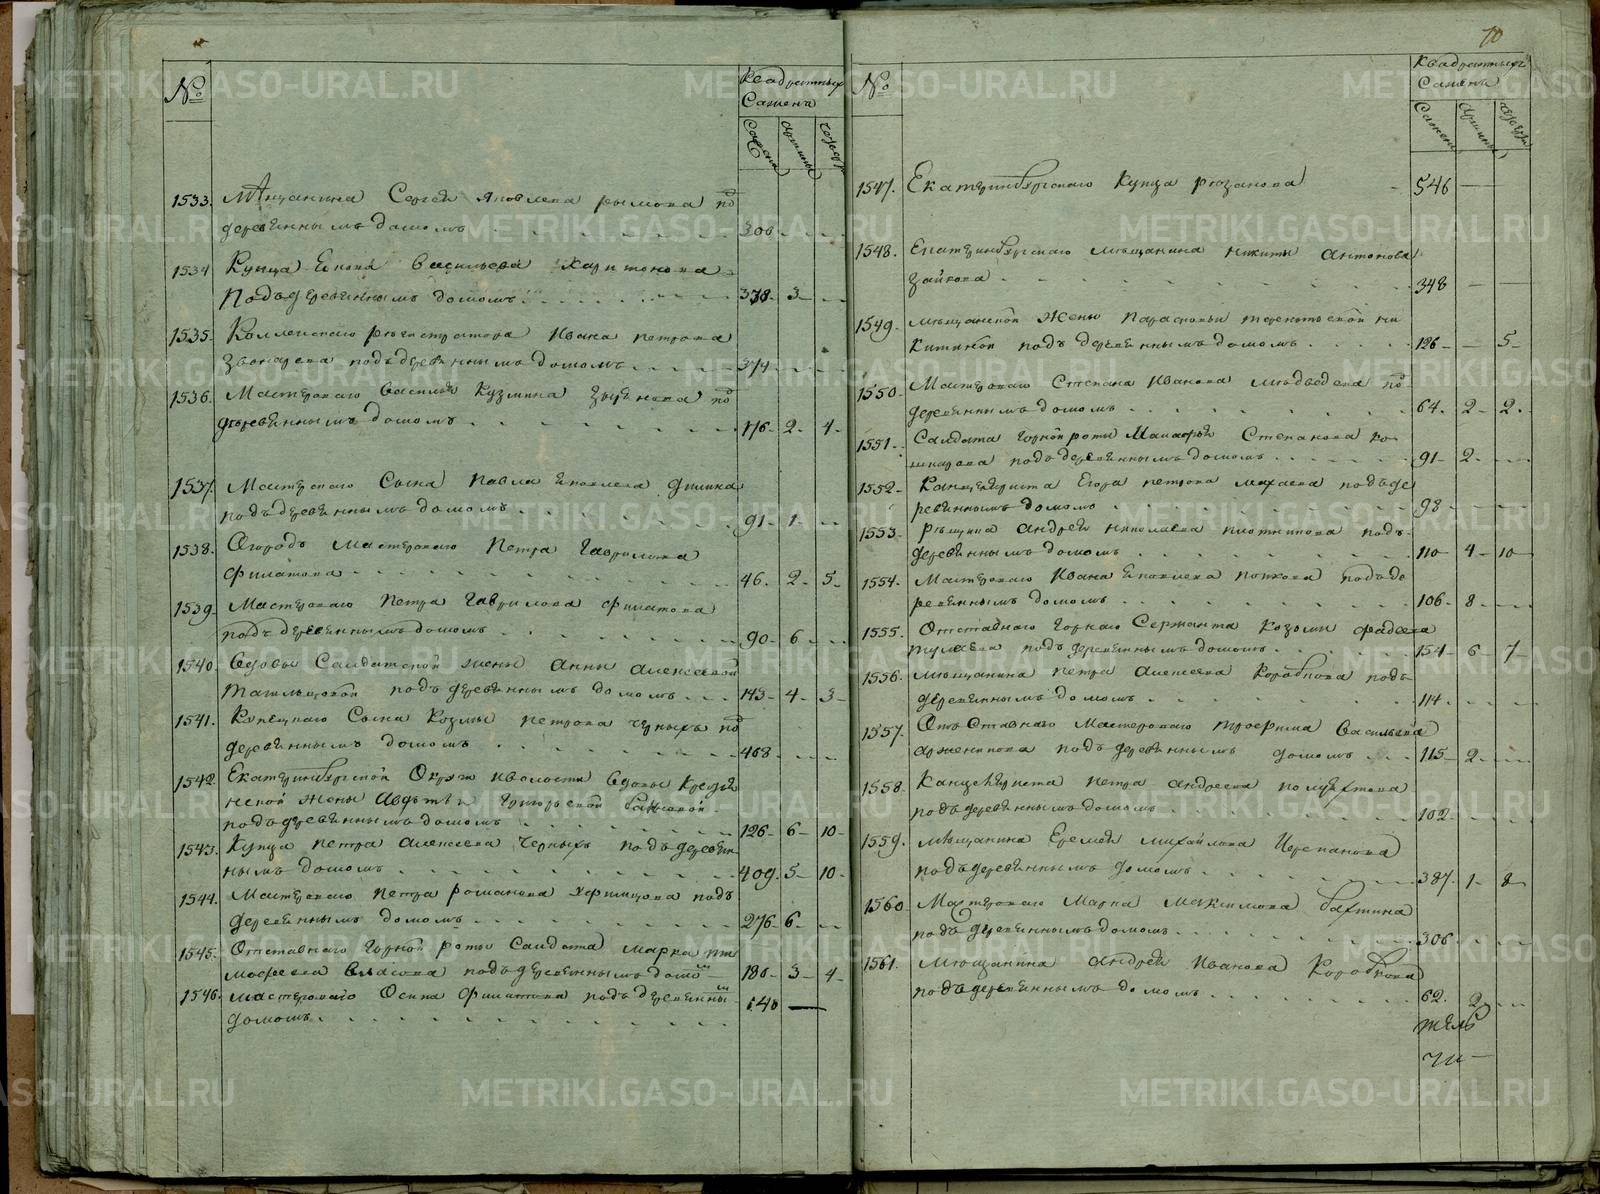 №
Квадратныхъ
Саженъ
Сажени
Аршины
1533. Мѣщанина Сергея Яковлева рымова по
деревяннымъ домомъ 306
1534 Купца Екова Васильева Харитонова
Подъ деревяннымъ домомъ 378 3
1535. Коллескаго регистратора Ивана петрова
Звонарева подъ деревяннымъ домомъ 374
1536. Мастероваго василья Кузмина Зырянова по
деревяннымъ домомъ 176 2 4
1537. Мастерскаго Сына павла
подъ деревяннымъ домомъ 91 1
1538. Огородъ Мастероваго Петра Гаврилова
Филатова 46 2 5
1539. Мастероваго Петра Гаврилова Филатова
подъ деревяннымъ домомъ 90 6
1540. Вдовы Салдатской жены Анны Алексеевой
подъ деревяннымъ домомъ 143 4 3
1541. Купецкаго Сына Козмы петрова черныхъ по
деревяннымъ домомъ 468
1542. Екатеринбургской Округи вдовы
жены Авдотьи Григорьевой
подъ деревяннымъ домомъ 126 6 10
1543. Купца петра алексеева черныхъ подъ деревян
нымъ домомъ 409 5 10
1544. Мастероваго петра романова подъ
деревяннымъ домомъ 276 6
1545. Отставнаго горной роты Салдата марка ти
мофеева власова подъ деревяннымъ домо 180 3 4
1546. мастероваго Осипа Филатова подъ деревянны
домомъ 640
70
№
Квадратныхъ
Саженъ
Сажени
Аршины
1547. Екатеринбургскаго Купца рязанова 546
1548. Екатеринбургскаго мѣщанина никиты антонова
зайкова 348
1549. мѣщанской Жены Парасковьи терентьевой ни
китиной подъ деревяннымъ домомъ 126 5
1550. Мастероваго Степана Иванова медведева по
деревяннымъ домомъ 64 2 2
1551. Салдата горной роты Степанова ко
подъ деревяннымъ домомъ 91 2
1552. Канцеляриста Егора петрова михаева подъ де
ревяннымъ домомъ 98
1553. андрея николаева плотникова подъ
деревяннымъ домомъ 110 4 10
1554. Мастероваго Ивана Яковлева попкова подъ де
ревяннымъ домомъ 106 8
1555. Отставнаго горнаго Сержанта Козмы фадеева
подъ деревяннымъ домомъ 154 6 7
1556. мѣщанина петра Алексеева Коробкова подъ
деревяннымъ домомъ 114
1557. Отъставнаго Мастероваго трофима Васильева
подъ деревяннымъ домомъ 115 2
1558. Канцеляриста петра андреева
подъ деревяннымъ домомъ 102
1559. мѣщанина Еремея михайлова Черепанова
подъ деревяннымъ домомъ 387 1 8
1560. Мастероваго Марка максимова бахтина
подъ деревяннымъ домомъ 306
1561. Мещанина андрея Иванова Коробкова
подъ деревяннымъ домомъ 62 2
METRIKI.GASO-URAL.RU